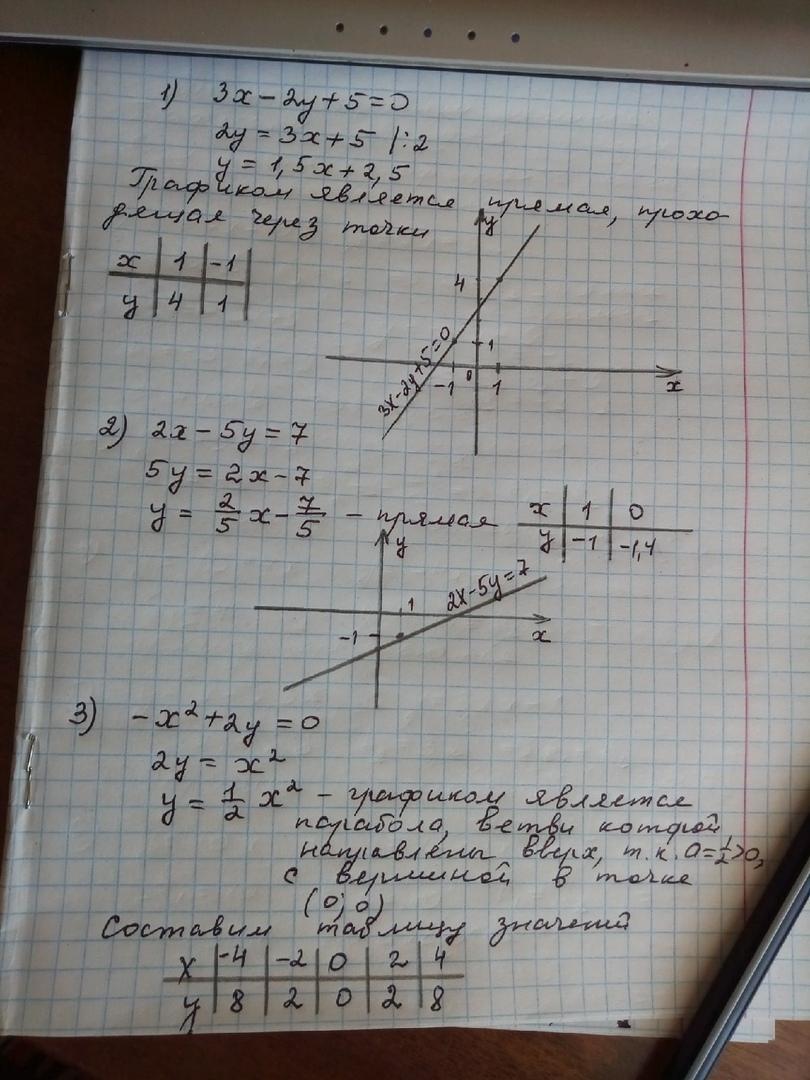 1) 3x - 2y + 5 = 0
2y = 3x + 5 |:2
y = 1,5x + 2,5
Графиком является прямая, прохо-
дящая через точки
x | 1 | -1
y | 4 | 1
y
4
1
0
-1 1
x
3x-2y+5=0
2) 2x - 5y = 7
5y = 2x - 7
y = 2/5 x - 7/5 - прямая
x | 1 | 0
y | -1 | -1,4
y
1
2x-5y=7
-1
x
3) -x² + 2y = 0
2y = x²
y = 1/2 x² - графиком является
парабола, ветви которой
направлены вверх, т.к. a=1/2>0,
с вершиной в точке
(0; 0)
Составим таблицу значений
x | -4 | -2 | 0 | 2 | 4
y | 8 | 2 | 0 | 2 | 8